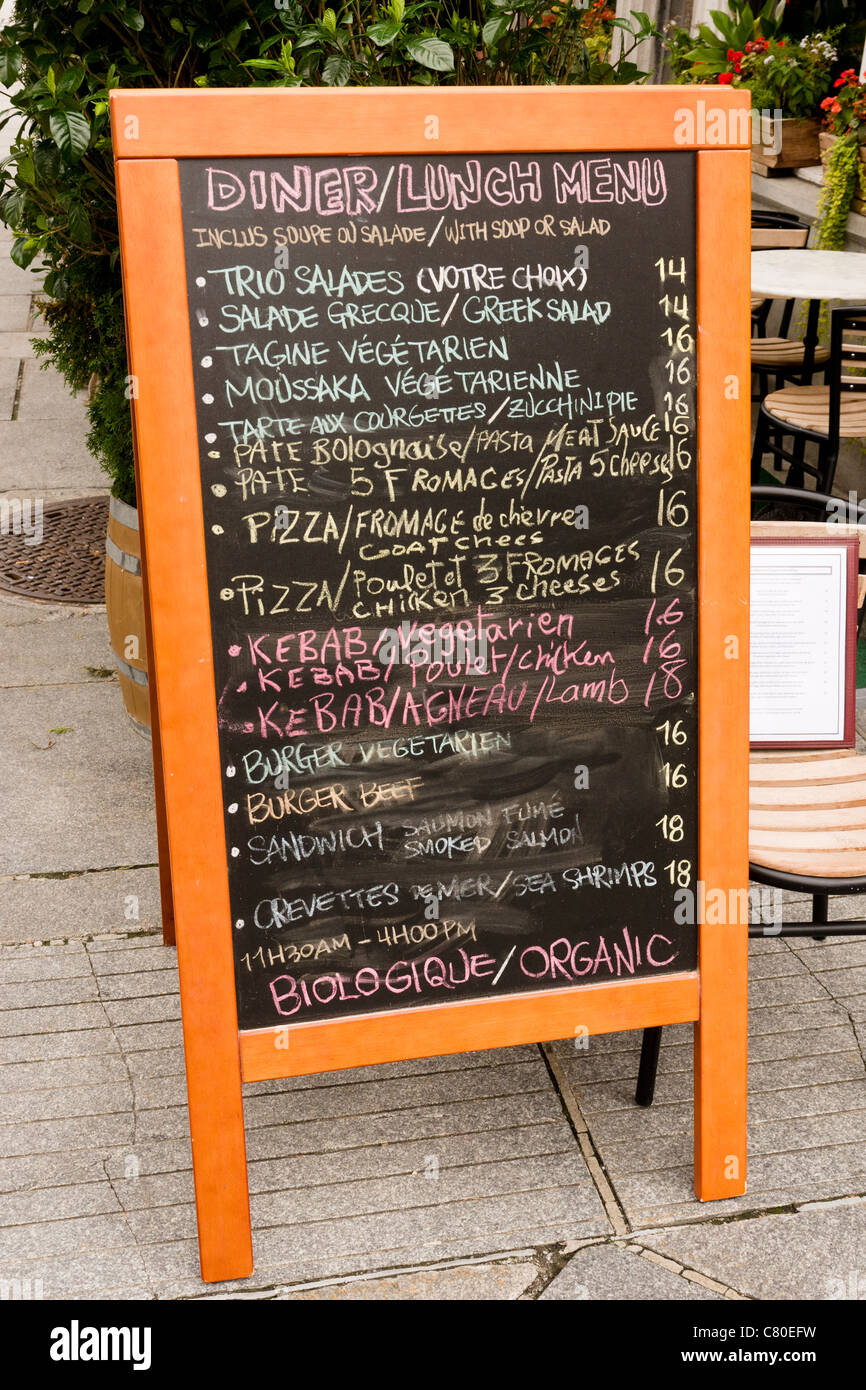 DINER/LUNCH MENU
INCLUS SOUPE OÙ SALADE/WITH SOUP OR SALAD
• TRIO SALADES (VOTRE CHOIX) 14
• SALADE GRECQUE/GREEK SALAD 14
• TAGINE VÉGÉTARIEN 16
• MOÙSSAKA VÉGÉTARIENNE 16
• TARTE AUX COURGETTES/ZUCCHINI PIE 16
• PATE Bolognaise/PASTA MEAT SAUCE 16
• PATE 5 FROMAGES/PASTA 5 cheeses 16
• PIZZA/FROMAGE de chèvre 16
GOAT chees
• PIZZA/Poulet et 3 FROMAGES 16
CHICKEN 3 cheeses
• KEBAB/Vegetarien 16
• KEBAB/Poulet/chicken 16
• KEBAB/AGNEAU/Lamb 18
• BURGER VEGETARIEN 16
• BURGER BEEF 16
• SANDWICH SAUMON FUMÉ 18
SMOKED SALMON
• CREVETTES DE MER/SEA SHRIMPS 18
11H30AM - 4H00PM
BIOLOGIQUE/ORGANIC
alamy
alamy
Image ID: C80EFW
www.alamy.com